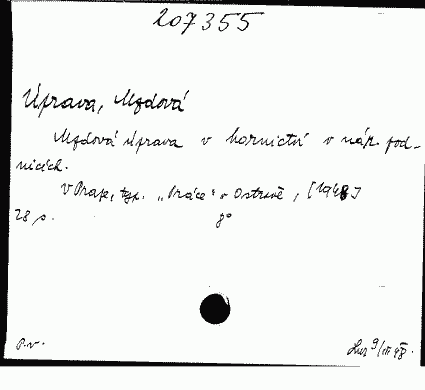 207355
Úprava, Mzdová
Mzdová úprava v hornictví v nár. pod-
nicích.
V Praze, typ. „Práce" v Ostravě, [1948]
28 s. 8°
P.v. 9/VII 48.